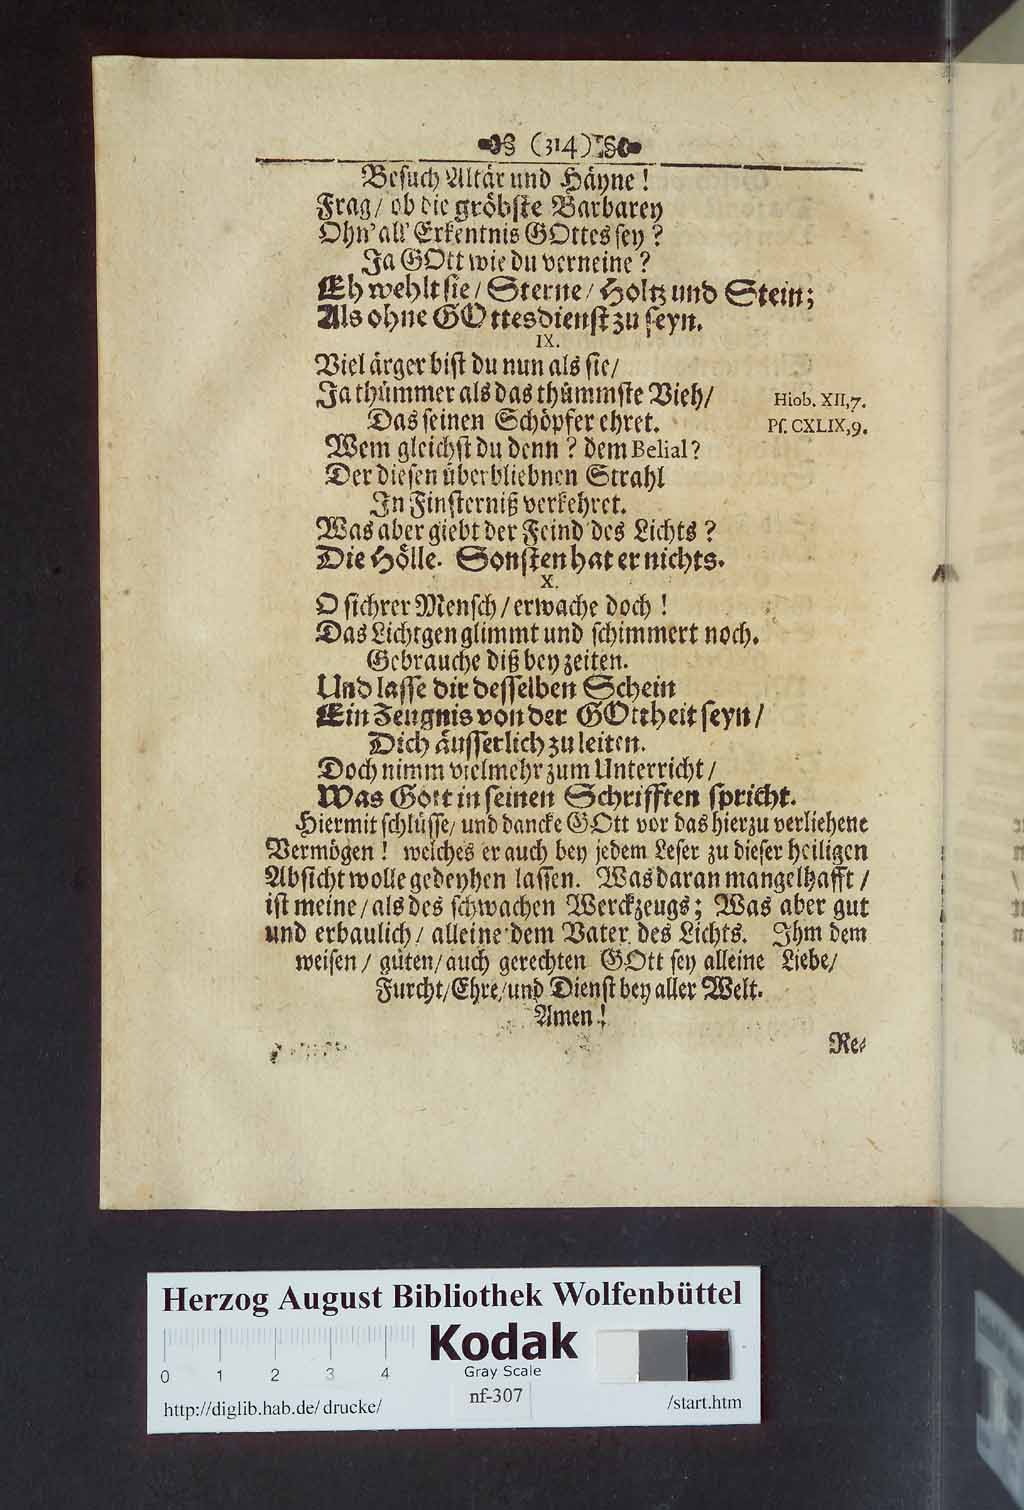 (314)
Besuch Altär und Häyne!
Frag/ ob die gröbste Barbarey
Ohn' all' Erkentnis GOttes sey?
Ja GOtt wie du verneine?
Eh wehlt sie/ Sterne/ Holtz und Stein;
Als ohne GOttesdienst zu seyn.
IX.
Viel ärger bist du nun als sie/
Ja thümmer als das thümmste Vieh/
Hiob. XII,7.
Das seinen Schöpfer ehret.
Ps. CXLIX,9.
Wem gleichst du denn? dem Belial?
Der diesen überbliebnen Strahl
In Finsterniß verkehret.
Was aber giebt der Feind des Lichts?
Die Hölle. Sonsten hat er nichts.
X.
O sichrer Mensch/ erwache doch!
Das Lichtgen glimmt und schimmert noch.
Gebrauche diß bey zeiten.
Und lasse dir desselben Schein
Ein Zeugnis von der GOttheit seyn/
Dich äusserlich zu leiten.
Doch nimm vielmehr zum Unterricht/
Was Gott in seinen Schrifften spricht.
Hiermit schlüsse/ und dancke GOtt vor das hierzu verliehene
Vermögen! welches er auch bey jedem Leser zu dieser heiligen
Absicht wolle gedeyhen lassen. Was daran mangelhafft/
ist meine/ als des schwachen Werckzeugs; Was aber gut
und erbaulich/ alleine dem Vater des Lichts. Ihm dem
weisen/ guten/ auch gerechten GOtt sey alleine Liebe/
Furcht/ Ehre/ und Dienst bey aller Welt.
Amen!
Re-
Herzog August Bibliothek Wolfenbüttel
Kodak
Gray Scale
0 1 2 3 4
nf-307
http://diglib.hab.de/drucke/
/start.htm